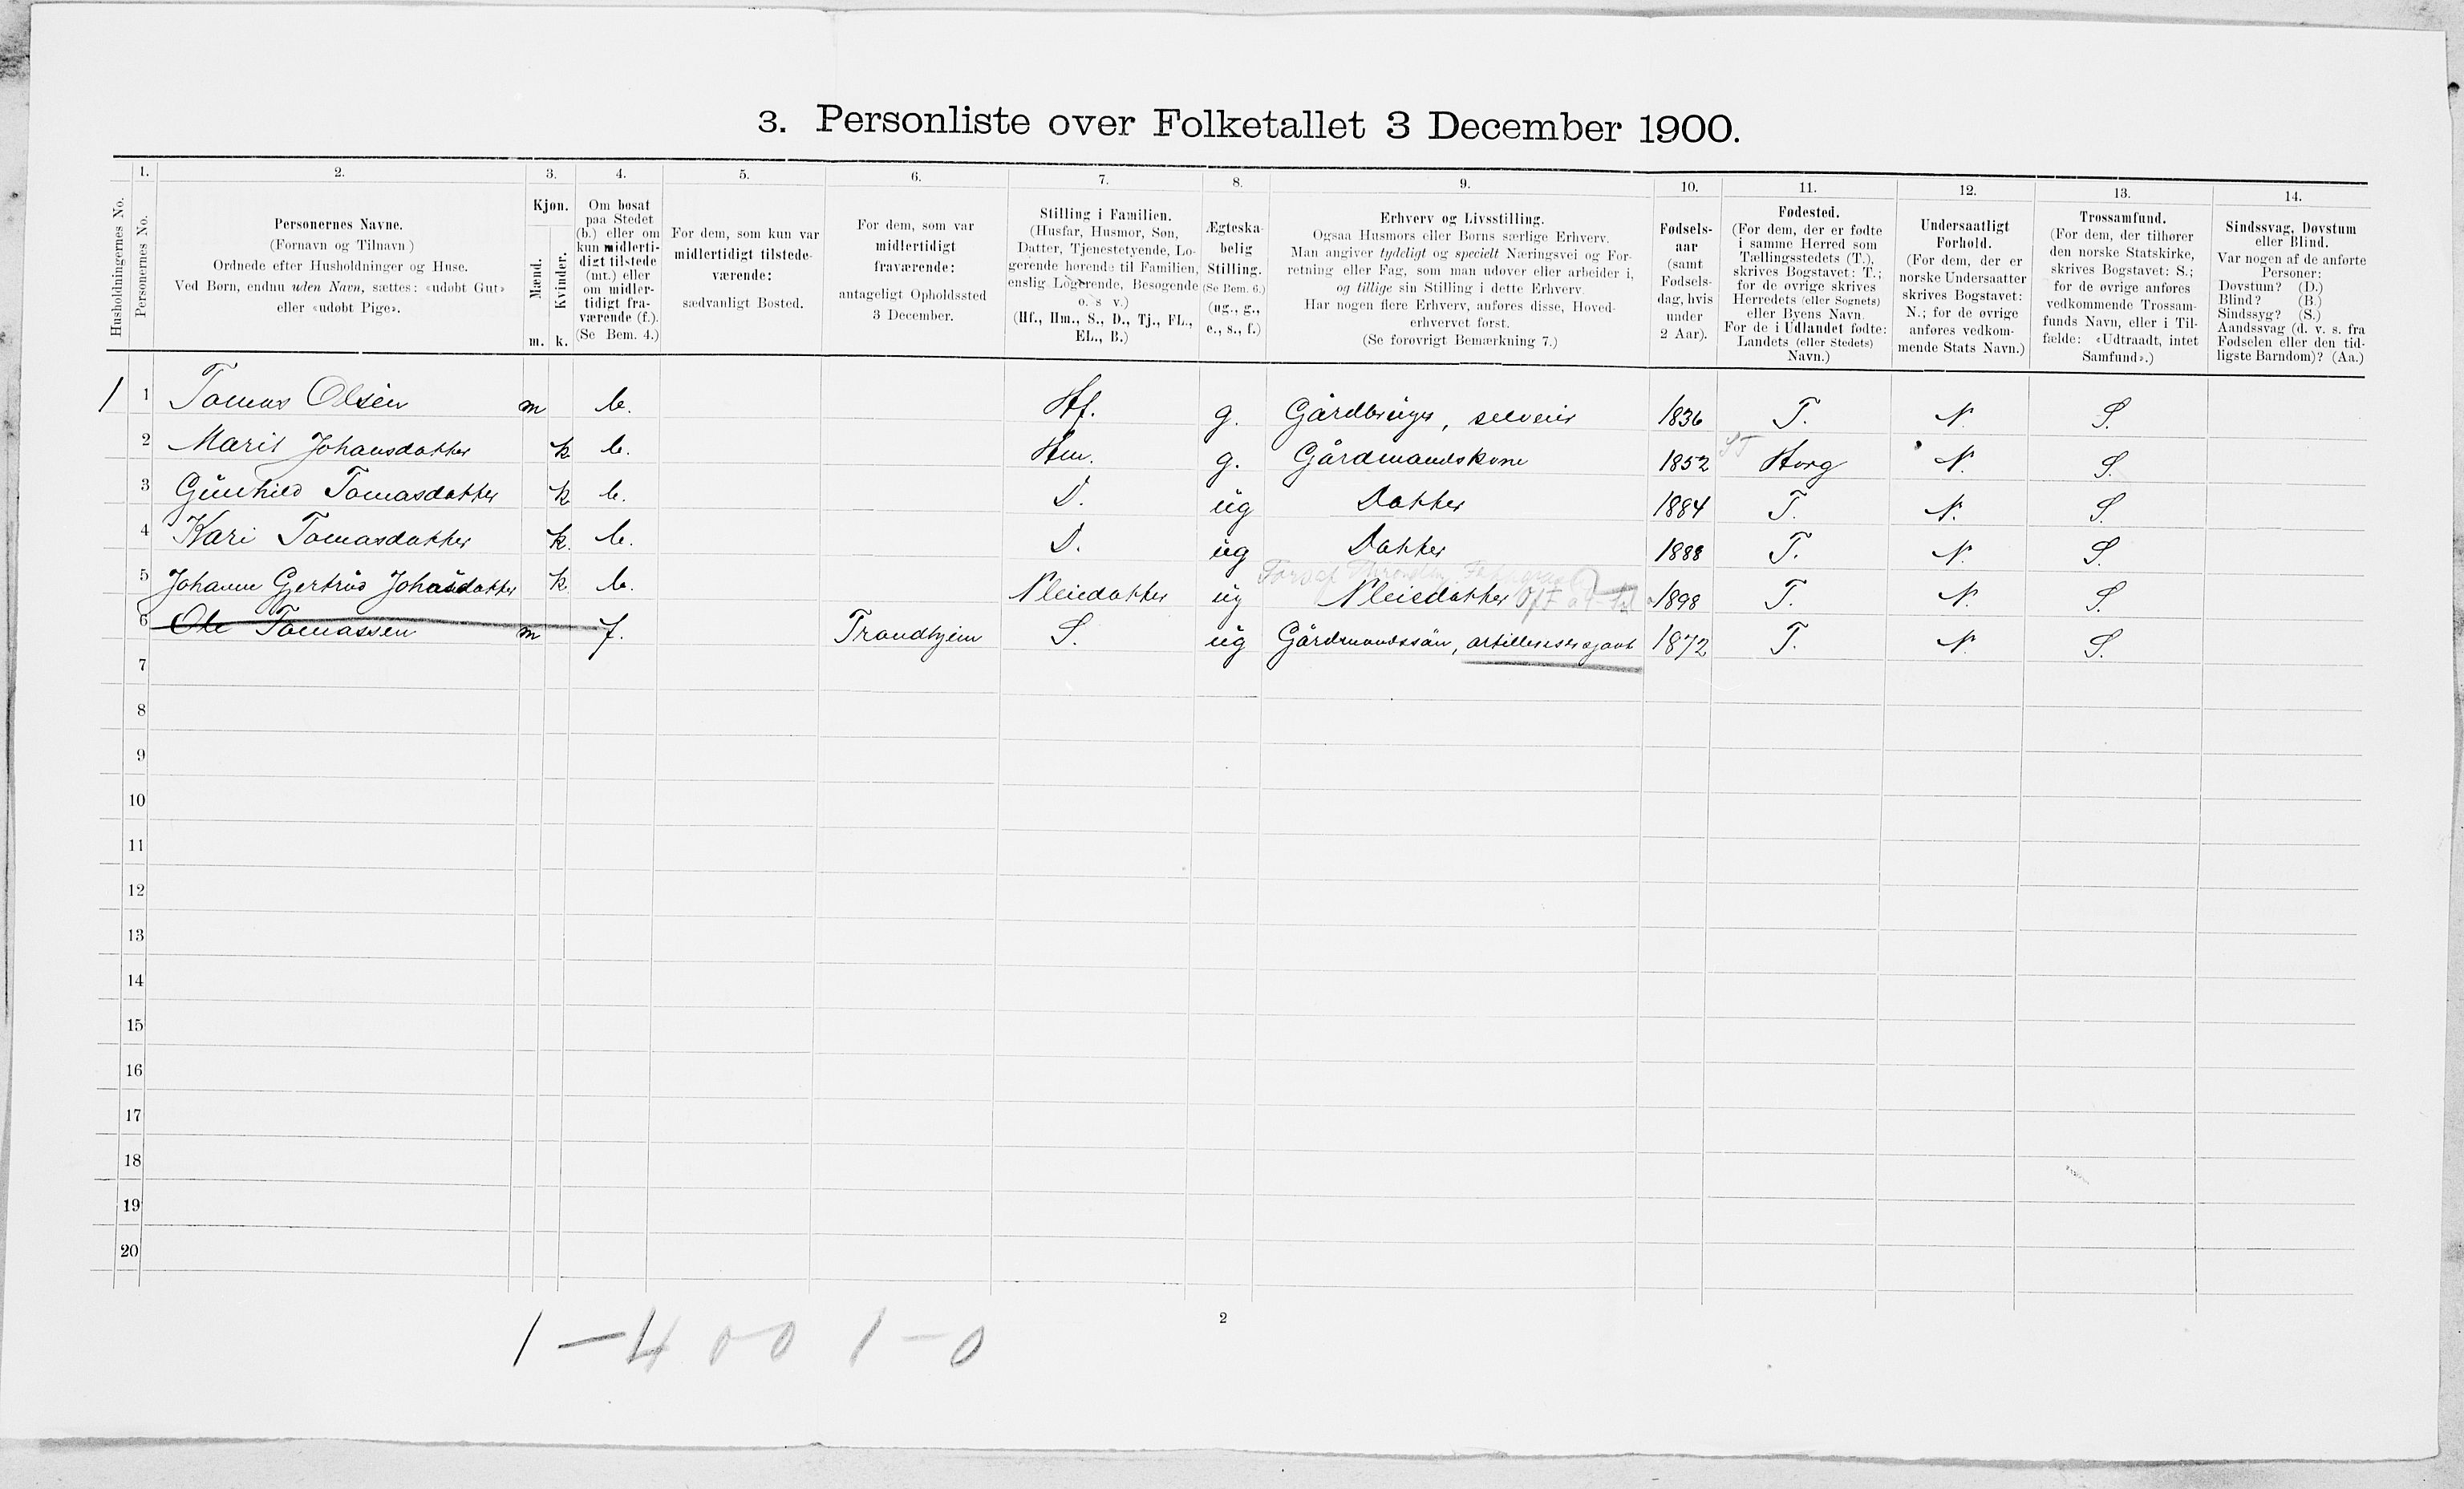 3. Personliste over Folketallet 3 December 1900.
1. 2. 3. 4. 5. 6. 7. 8. 9. 10. 11. 12. 13. 14.
Husholdningernes No.
Personernes No.
Personernes Navne.
(Fornavn og Tilnavn)
Ordnede efter Husholdninger og Huse.
Ved Børn, endnu uden Navn, sættes: «udøbt Gut»
eller «udøbt Pige».
Kjøn.
Mænd.
Kvinder.
m. k.
Om bosat
paa Stedet
(b.) eller om
kun midlerti-
digt tilstede
(mt.) eller
om midler-
tidigt fra-
værende (f.).
(Se Bem. 4.)
For dem, som kun var
midlertidigt tilstede-
værende:
sædvanligt Bosted.
For dem, som var
midlertidigt
fraværende:
antageligt Opholdssted
3 December.
Stilling i Familien.
(Husfar, Husmor, Søn,
Datter, Tjenestetyende, Lo-
gerende hørende til Familien,
enslig Logerende, Besøgende
o. s v.)
(Hf., Hm., S., D., Tj., FL.,
EL., B.)
Ægteska-
belig
Stilling.
(Se Bem. 6.)
(ug., g.,
e., s., f.)
Erhverv og Livsstilling.
Ogsaa Husmors eller Børns særlige Erhverv.
Man angiver tydeligt og specielt Næringsvei og For-
retning eller Fag, som man udøver eller arbeider i,
og tillige sin Stilling i dette Erhverv.
Har nogen flere Erhverv, anføres disse, Hoved-
erhvervet først.
(Se forøvrigt Bemærkning 7.)
Fødsels-
aar
(samt
Fødsels-
dag, hvis
under
2 Aar).
Fødested.
(For dem, der er fødte
i samme Herred som
Tællingsstedets (T.),
skrives Bogstavet: T.;
for de øvrige skrives
Herredets (eller Sognets)
eller Byens Navn.
For de i Udlandet fødte:
Landets (eller Stedets)
Navn.)
Undersaatligt
Forhold.
(For dem, der er
norske Undersaatter
skrives Bogstavet:
N.; for de øvrige
anføres vedkom-
mende Stats Navn.)
Trossamfund.
(For dem, der tilhører
den norske Statskirke,
skrives Bogstavet: S.;
for de øvrige anføres
vedkommende Trossam-
funds Navn, eller i Til-
fælde: «Udtraadt, intet
Samfund».)
Sindssvag, Døvstum
eller Blind.
Var nogen af de anførte
Personer:
Døvstum? (D.)
Blind? (B.)
Sindssyg? (S.)
Aandssvag (d. v. s. fra
Fødselen eller den tid-
ligste Barndom)? (Aa.)
1 1 Tomas Olsen m b. Hf. g. Gårdbruger, selveier 1836 T. N. S.
2 Marit Johansdatter k b. Hm. g. Gårdmandskone 1852 ST Horg N. S.
3 Gunhild Tomasdatter k b. D. ug Datter 1884 T. N. S.
4 Kari Tomasdatter k. b. D. ug Datter 1888 T. N. S.
5 Johanne Gjertrud Johnsdatter k b. Pleiedatter ug Pleiedatter 1898 T. N. S.
6 Ole Tomassen m f. Trondhjem S. ug Gårdmandssøn, artillerisersjant 1872 T. N. S.
7
8
9
10
11
12
13
14
15
16
17
18
19
20
2
1 – 4 0 – 0 1 – 0